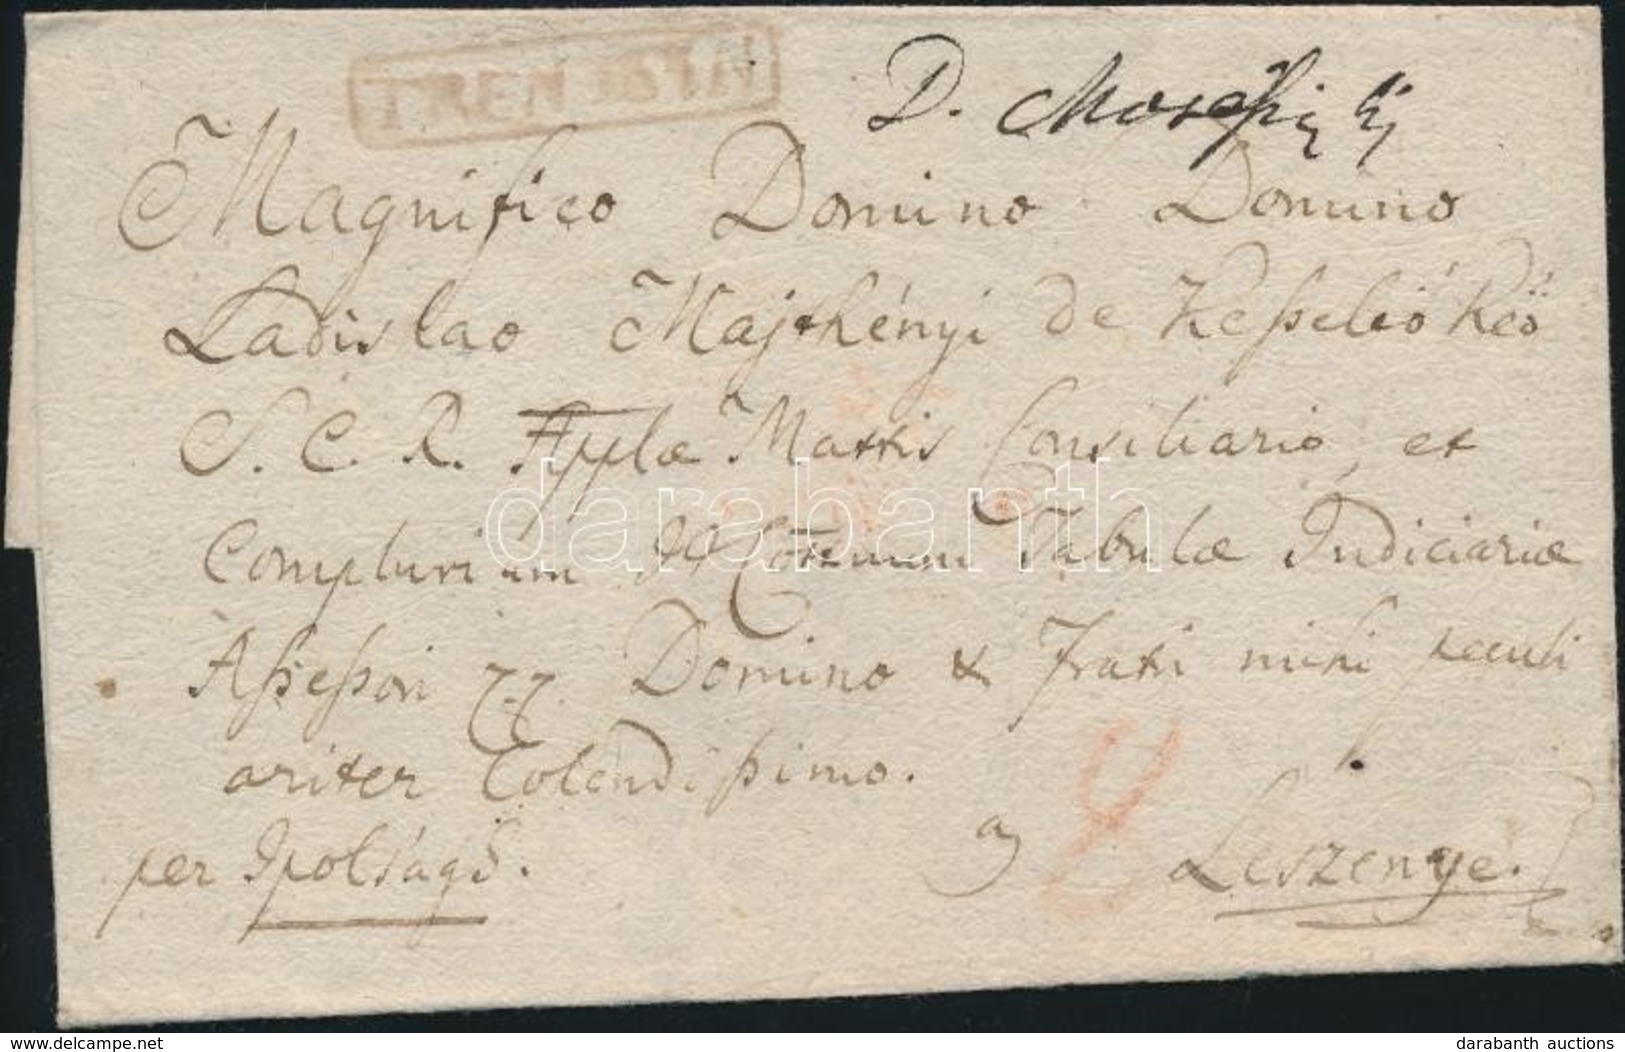 TRENTSIN
D.
Magnifico Domino Domino
Ladislao Majthényi de Keßeleő Keö
S. C. R. Applae Mattis Consiliario, et
Complurium I. Comum Tabulae Judiciariae
Aßeßori Domino & Fratri mihi peculi
ariter Colendißimo.
per Ipolságh.
a 8 Leszenye.
darabanth
delcampe.net
darabanth auctions